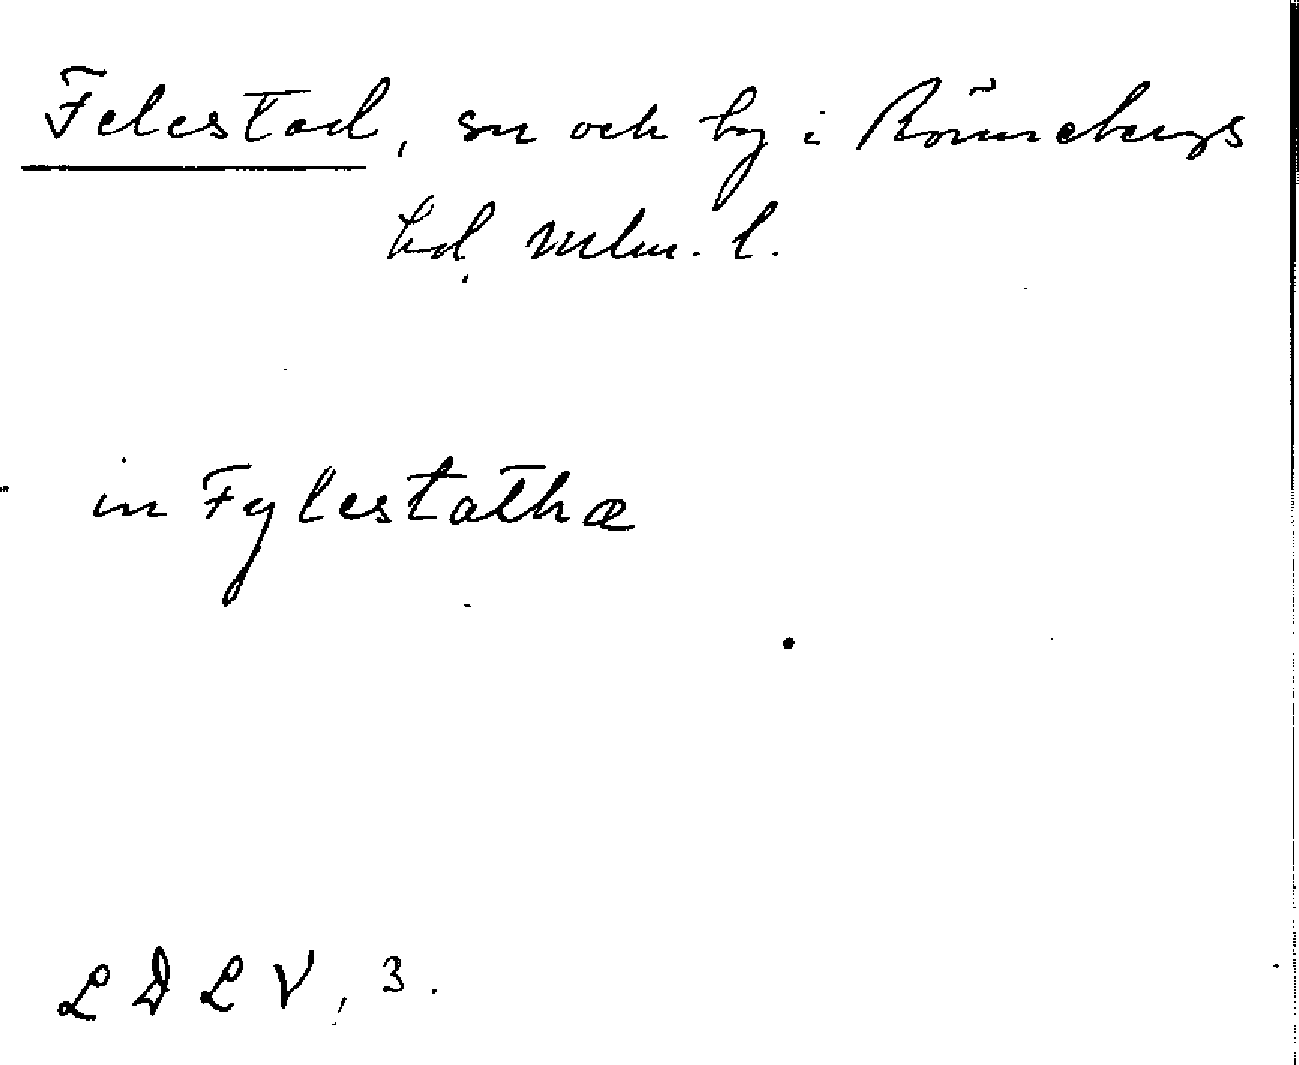 Felestad, sn och by i Rönnebergs
hd. Mlm. l.
in Fylestathæ
L D L V, 3.